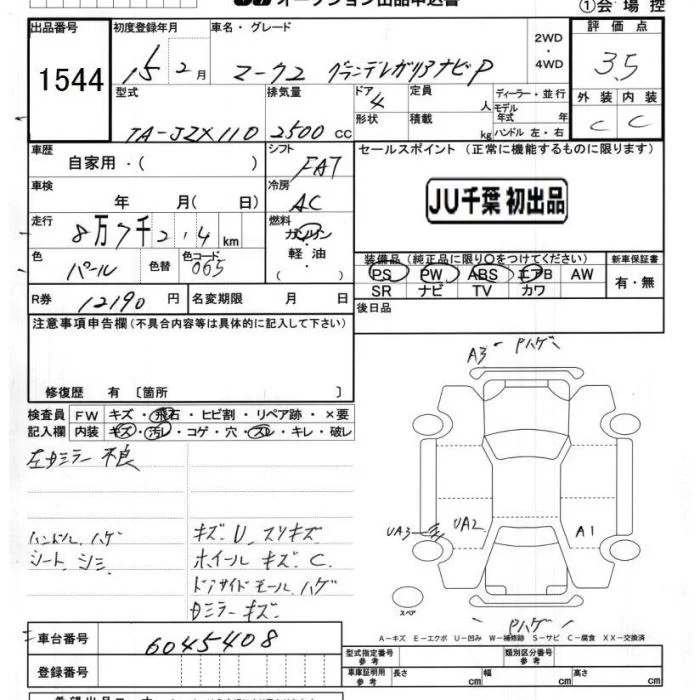 JU オークション出品申込書
①会場控
出品番号
1544
初度登録年月
15 2月
車名・グレード
マーク2 グランデレガリアナビP
2WD
・
4WD
評価点
3.5
外装 内装
C C
型式
TA-JZX110
排気量
2500 cc
ドア
4
形状
定員
人
積載
kg
ディーラー・並行
モデル年式 年
ハンドル 左・右
車歴
自家用・( )
シフト
FAT
セールスポイント (正常に機能するものに限ります)
JU千葉 初出品
車検
年 月( 日)
冷房
AC
走行
8万7千2,4 km
燃料
ガソリン
・
軽油
( )
色
パール
色替
色コード
065
装備品(純正品に限り○をつけてください)
PS PW ABS エアB AW
SR ナビ TV カワ
新車保証書
有・無
R券 12190 円
名変期限 月 日
後日品
注意事項申告欄(不具合内容等は具体的に記入して下さい)
修復歴 有 〔箇所 〕
検査員記入欄
FW キズ・飛石・ヒビ割・リペア跡・×要
内装 キズ・汚レ・コゲ・穴・スレ・キレ・破レ
左Dミラー 不良
ハンドル、ハゲ
シート、シミ
キズ. U. スリキズ
ホイール キズ. C.
ドアサイドモール ハゲ
Dミラー キズ.
A3 Pハゲ
UA3
UA2
A1
スペア
Pハゲ
A－キズ E－エクボ U－凹み W－補修跡 S－サビ C－腐食 XX－交換済
車台番号
6045408
登録番号
型式指定番号
参考
類別区分番号
参考
車庫証明用
参考
長さ cm
幅 cm
高さ cm